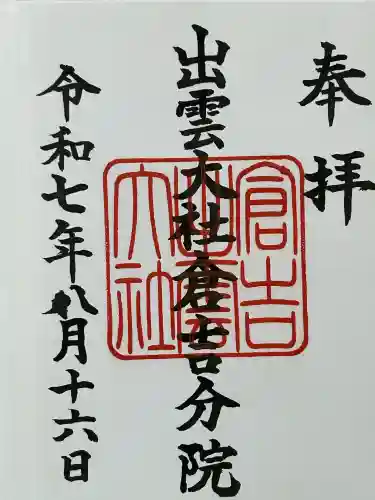 奉拝
出雲大社倉吉分院
令和七年八月十六日
倉吉
出雲
大社